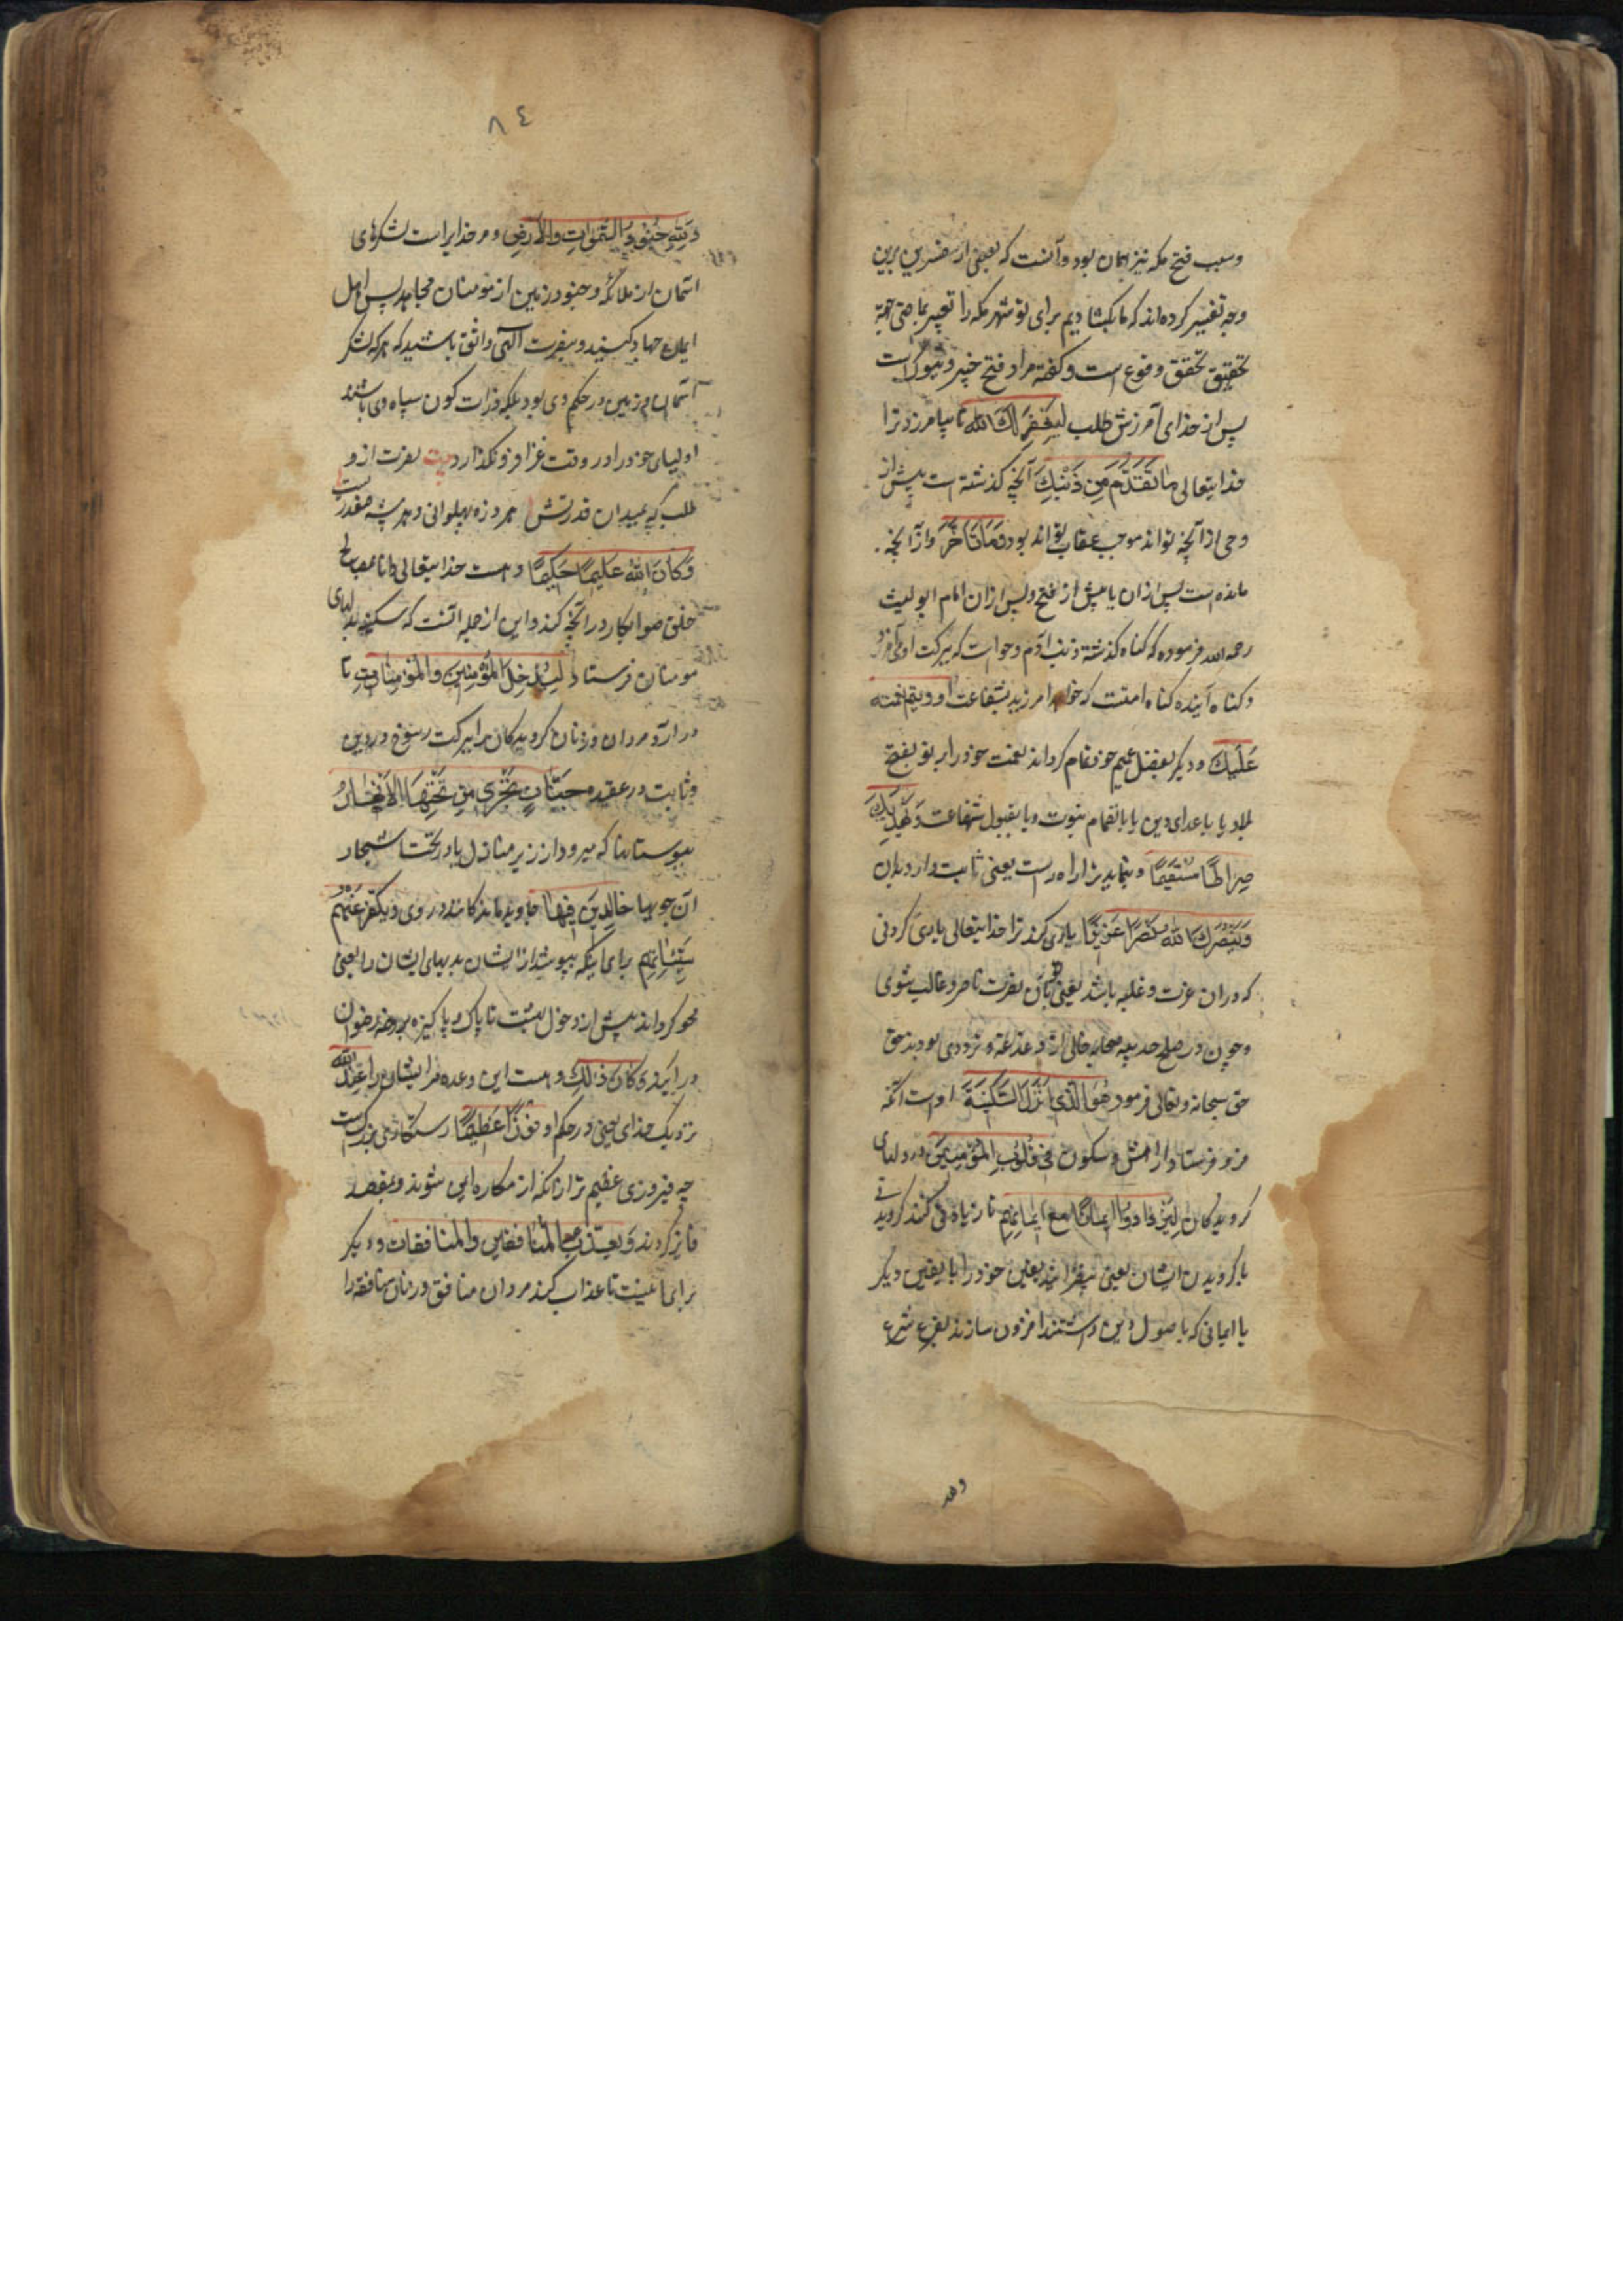 وسبب فتح مکه نیز همان بود وآنست که بعضی از مفسرین برین
وجه تفسیر کرده اند که ما بکشادیم برای تو شهر مکه را تعبیر بماضی جهة
تحقیق تحقق وقوع است و کفته مراد فتح خیبر و تبوک است
پس از خدای آمرزش طلب لِیَغفِرَ لَكَ الله تا بیامرزد ترا
خدایتعالی مَا تَقَدَّمَ مِن ذَنبِكَ آنچه کذشته است پیش از
وحی از آنچه تواند موجب عقاب تواند بود وَمَا تَأَخَّرَ وازآنچه
مانده است پس ازان یا پیش از فتح وپس ازان امام ابو لیث
رحمه الله فرموده که کناه کذشته ذنب ادم وحوا است که ببرکت او
وکناه آینده کناه امتست که خواهد امرزید بشفاعت او ویتم نعمته
عَلَیكَ ودیکر بفضل عمیم خود تمام کرداند نعمت خود را بر تو بفتح
بلاد یا باعدای دین یا بانضمام نبوت ویا بقبول شفاعت وَیَهدِیَكَ
صِرَاطًا مُستَقِیمًا وبنماید ترا راه راست یعنی ثابت دارد بران
وَیَنصُرَكَ الله نَصرًا عَزِیزًا یاری کند ترا خدایتعالی یاری کردنی
که دران عزت وغلبه باشد یعنی بآن نصرت ناصر وغالب شوی
وچون در صلح حدیبیه صحابه خالی از دغدغه وترددی بودند حق
حق سبحانه وتعالی فرمود هُوَ الَّذِی أَنزَلَ السَّکِینَةَ اوست آنکه
فرو فرستاد آرامش وسکون فِی قُلُوبِ المُؤمِنِینَ در دلهای
کرویدکان لِیَزدَادُوا إِیمَانًا مَعَ إِیمَانِهِم تا زیاده کنند کرویدنی
با کرویدن ایشان یعنی بیفزایند یقین خود را با یقین دیکر
یا ایمانی که باصول دین داشتند افزون سازند بفروع شرع
٨٤
وَلِلّهِ جُنُودُ السَّمٰوَاتِ وَالأَرضِ ومر خدایراست لشکرهای
آسمان از ملائکه وجنود زمین از مومنان مجاهد پس اهل
ایمان جهاد کنید وبنصرت الهی واثق باشید که هر که لشکر
آسمان وزمین در حکم وی بود بلکه ذرات کون سپاه وی باشند
اولیای خود را در وقت غزا فرو نکذارد بیت نصرت از و
طلب که بمیدان قدرتش هر ذره پهلوانی وهر پشه صفدریست
وَکَانَ اللهُ عَلِیمًا حَکِیمًا وهست خدایتعالی دانا بمصالح
خلق صوابکار در آنچه کند واین از جمله آنست که سکینه بدلهای
مومنان فرستاد لِیُدخِلَ المُؤمِنِینَ وَالمُؤمِنَاتِ تا
درآرد مردان وزنان کرویدکان را ببرکت رسوخ در دین
وثابت در عقیده جَنَّاتٍ تَجرِی مِن تَحتِهَا الأَنهَارُ
ببوستانها که میرود از زیر منازل یا در تحت اشجار
آن جویها خَالِدِینَ فِیهَا جاوید مانندکانند در وی وَیُکَفِّرَ عَنهُم
سَیِّئَاتِهِم برای اینکه بپوشد از ایشان بدیهای ایشان را یعنی
محو کرداند پیش از دخول بهشت تا پاک وپاکیزه بروضه رضوان
درآیند وَکَانَ ذٰلِكَ وهست این وعده مر ایشان را عِندَ اللهِ
نزدیک خدای یعنی در حکم او فَوزًا عَظِیمًا رستکاری بزرکست
چه فیروزی عظیم تر از آنکه از مکاره ایمن شوند وبمقصد
فایز کردند وَیُعَذِّبَ المُنَافِقِینَ وَالمُنَافِقَات ودیکر
برای آنست تا عذاب کند مردان منافق وزنان منافقه را